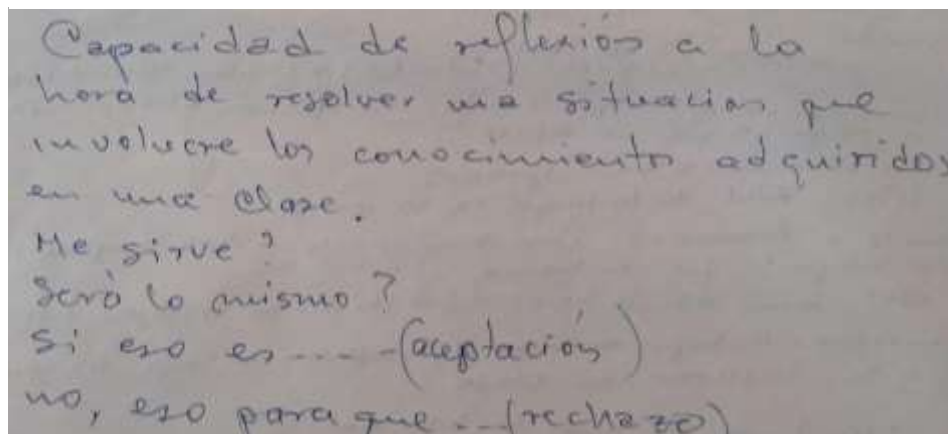 Capacidad de reflexión a la
hora de resolver una situacion que
involucre los conocimientos adquiridos
en una clase.
Me sirve?
Será lo mismo?
Si eso es ..... (aceptación)
no, eso para que ... (rechazo)